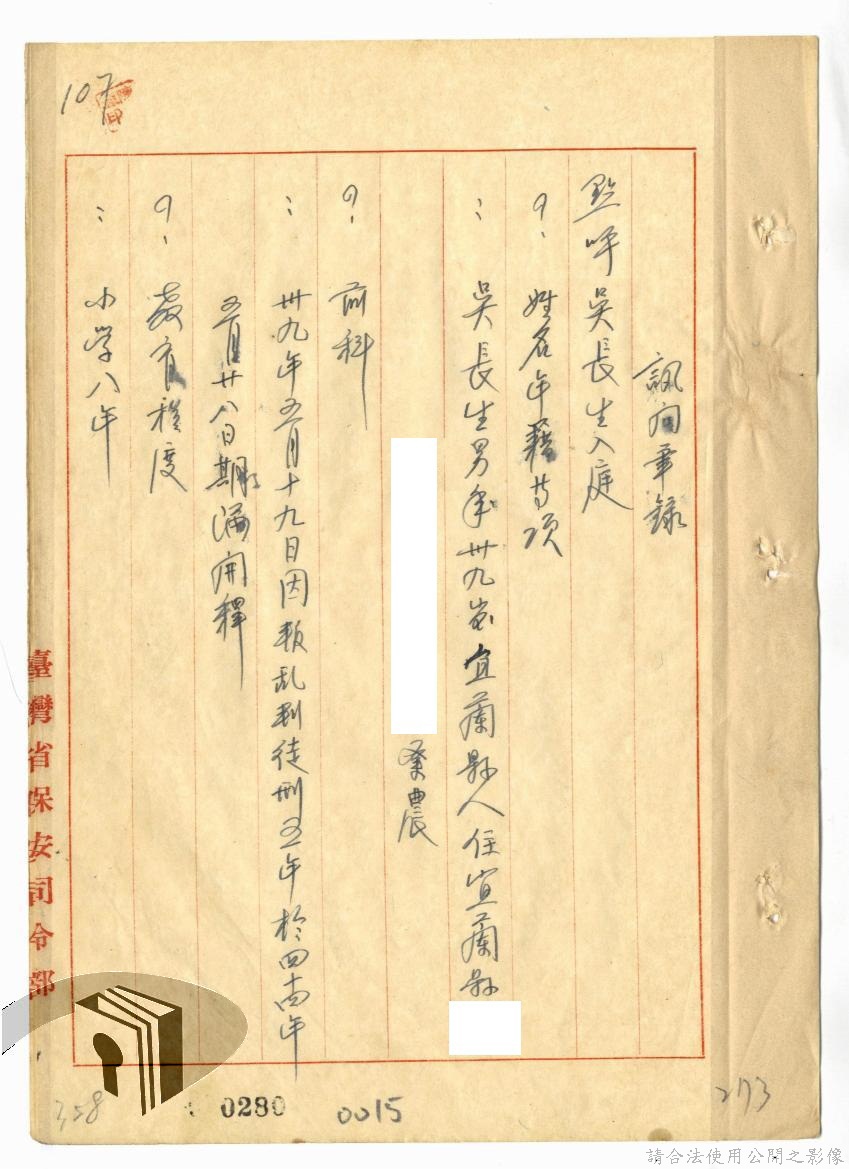 107
訊问筆錄
點呼吳長生入庭
問、姓名年籍等項
：吳長生男年卅九岁宜蘭縣人住宜蘭縣
業農
問、前科
：卅九年五月十九日因叛乱判徒刑五年於四十四年
五月廿八日期滿開釋
問、教育程度
：小学八年
臺灣省保安司令部
358
0280
0015
273
請合法使用公開之影像